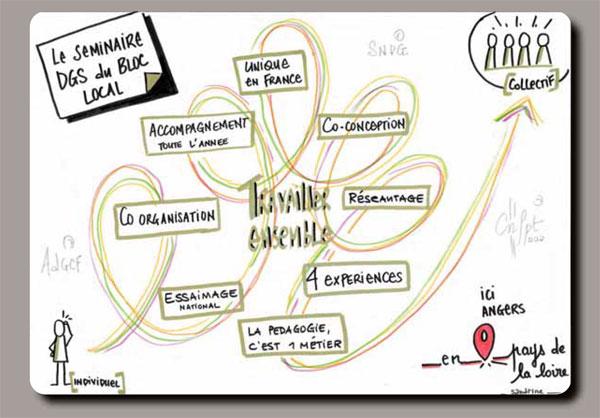 Le Séminaire
DGS du Bloc
Local
SNDG
Collectif
Unique
en France
Accompagnement
toute l'année
Co-conception
Travailler
ensemble
Réseautage
Co organisation
AdGCF
Cnfpt
4 expériences
Essaimage
national
La pédagogie,
c'est 1 métier
ici
Angers
en pays de
la loire
Individuel
Sandrine